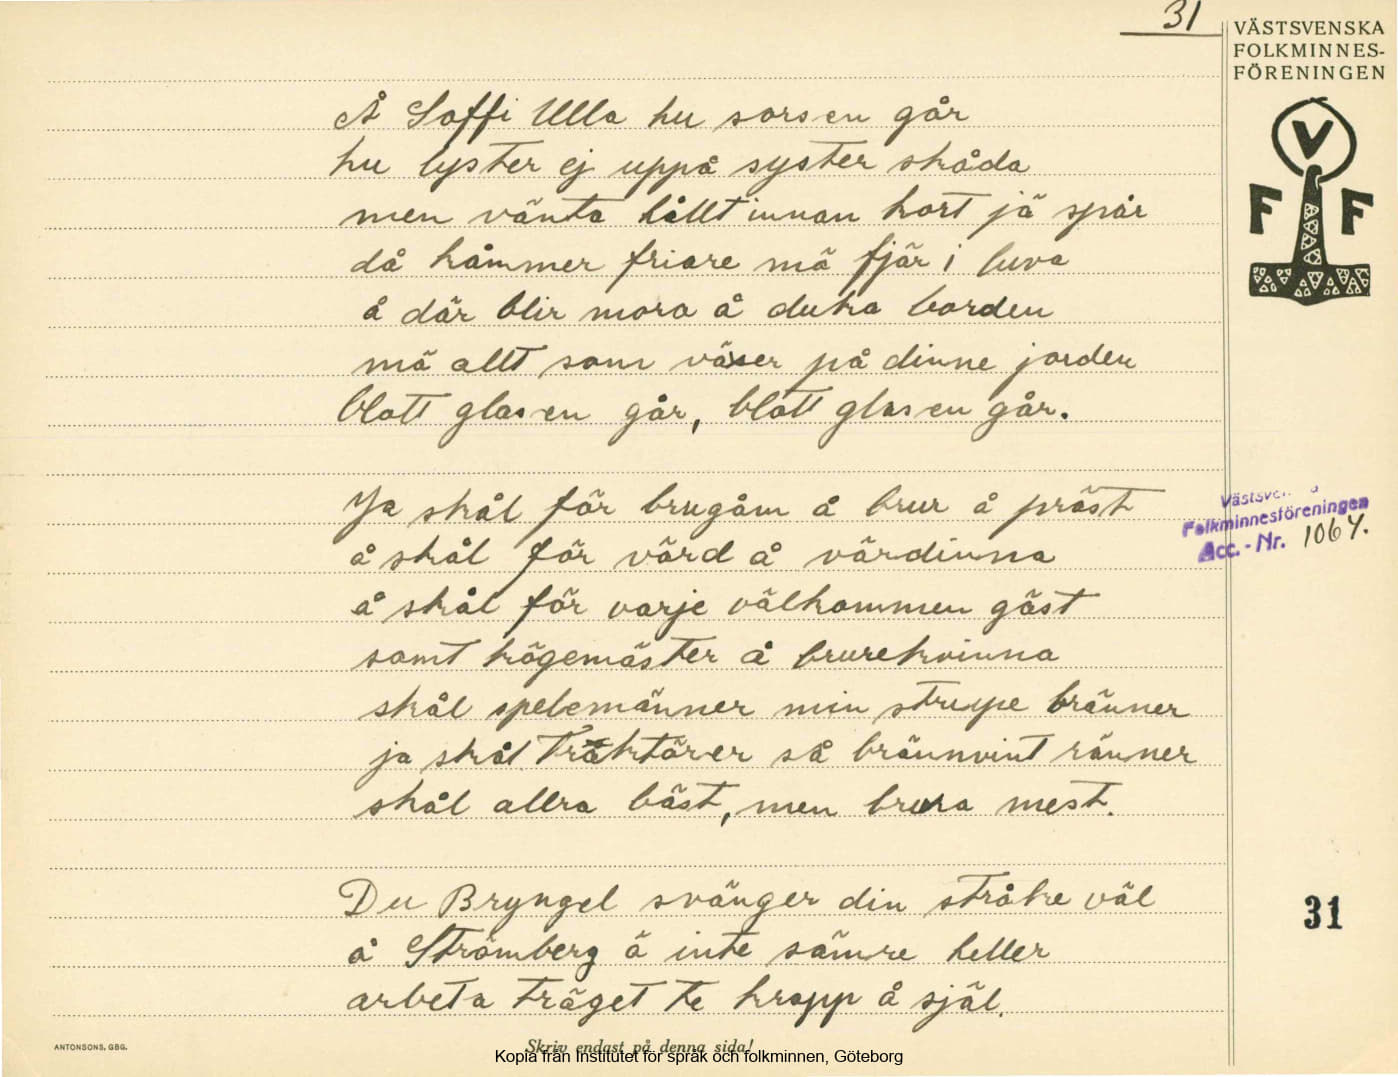 31
VÄSTSVENSKA
FOLKMINNES-
FÖRENINGEN
V
F F
Å Soffi Ulla hu sorsen går
hu lyster ej uppå syster skåda
men vänta hållt innan kort jä spår
då kåmmer friare mä fjär i luva
å där blir mora å duka borden
mä allt som växer på dinne jorden
blott glasen går, blott glasen går.
Ja skål för brugåm å brur å präst
å skål för värd å värdinna
å skål för varje välkommen gäst
samt kögemäster å brurekvinna
skål spelemänner min strupe bränner
ja skål träktörer så brännvint ränner
skål allra bäst, men brura mest.
Folkminnesföreningen
Acc.-Nr. 1064.
Du Bryngel svänger din stråke väl
å Strömberg ä inte sämre heller
arbeta träget te kropp å själ.
31
ANTONSONS, GBG.
Skriv endast på denna sida!
Kopia från Institutet för språk och folkminnen, Göteborg